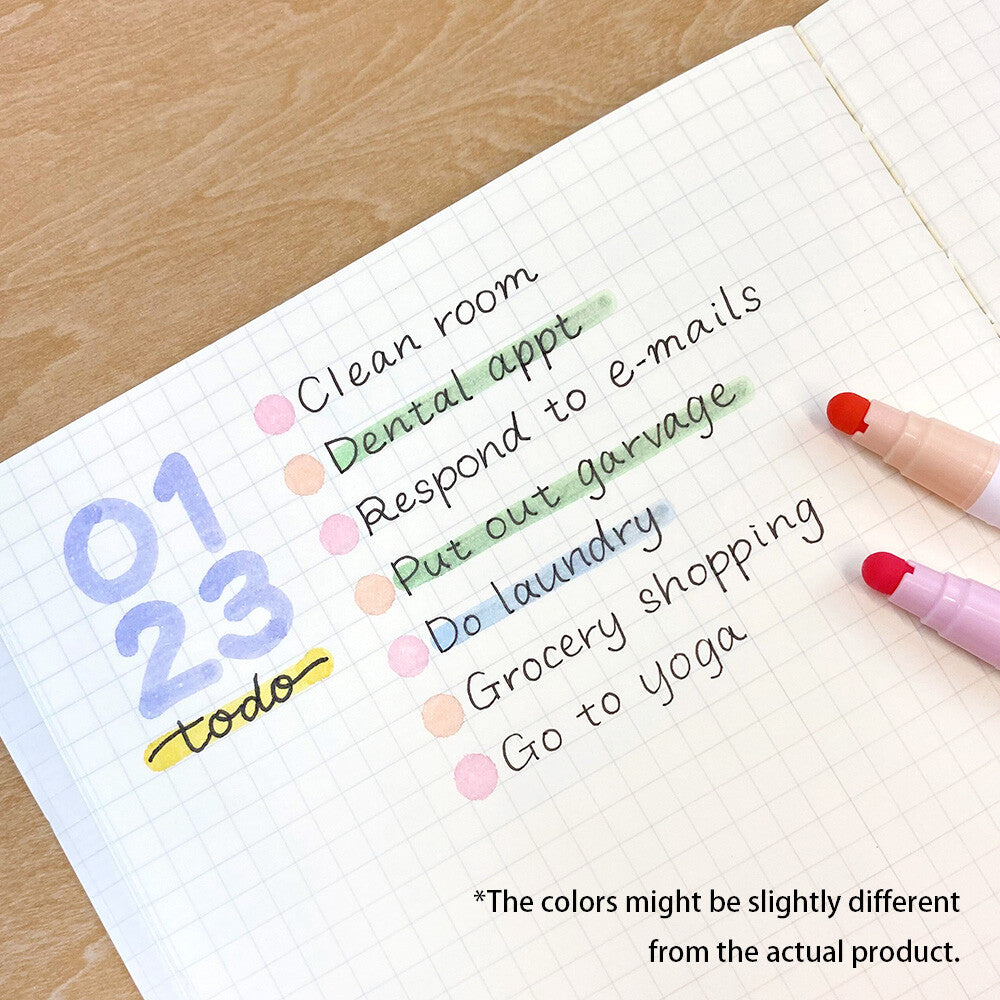 01
23
todo
Clean room
Dental appt
Respond to e-mails
Put out garvage
Do laundry
Grocery shopping
Go to yoga
*The colors might be slightly different
from the actual product.